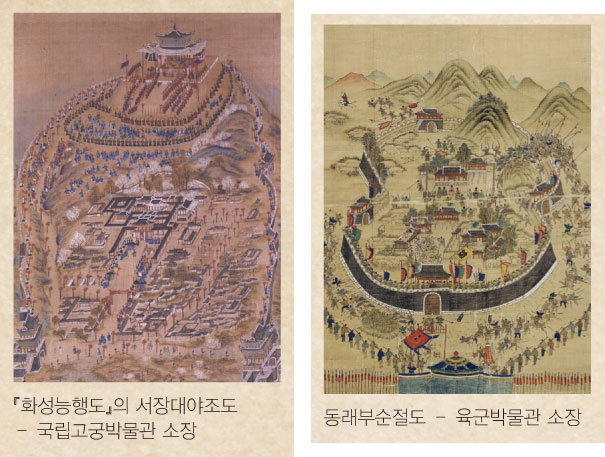 『화성능행도』의 서장대야조도
- 국립고궁박물관 소장
동래부순절도 - 육군박물관 소장